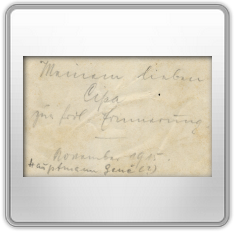 Meinem lieben
Opa
zur Erinnerung
November 1915.
Hauptmann